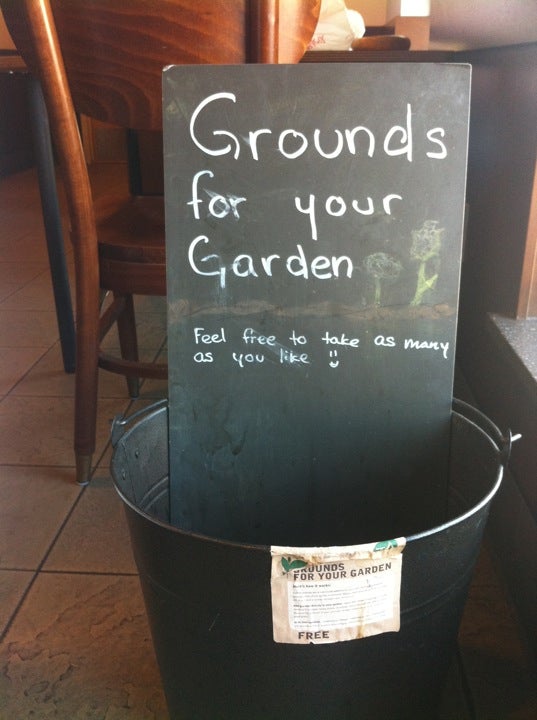 Grounds
for your
Garden
Feel free to take as many
as you like
GROUNDS
FOR YOUR GARDEN
FREE